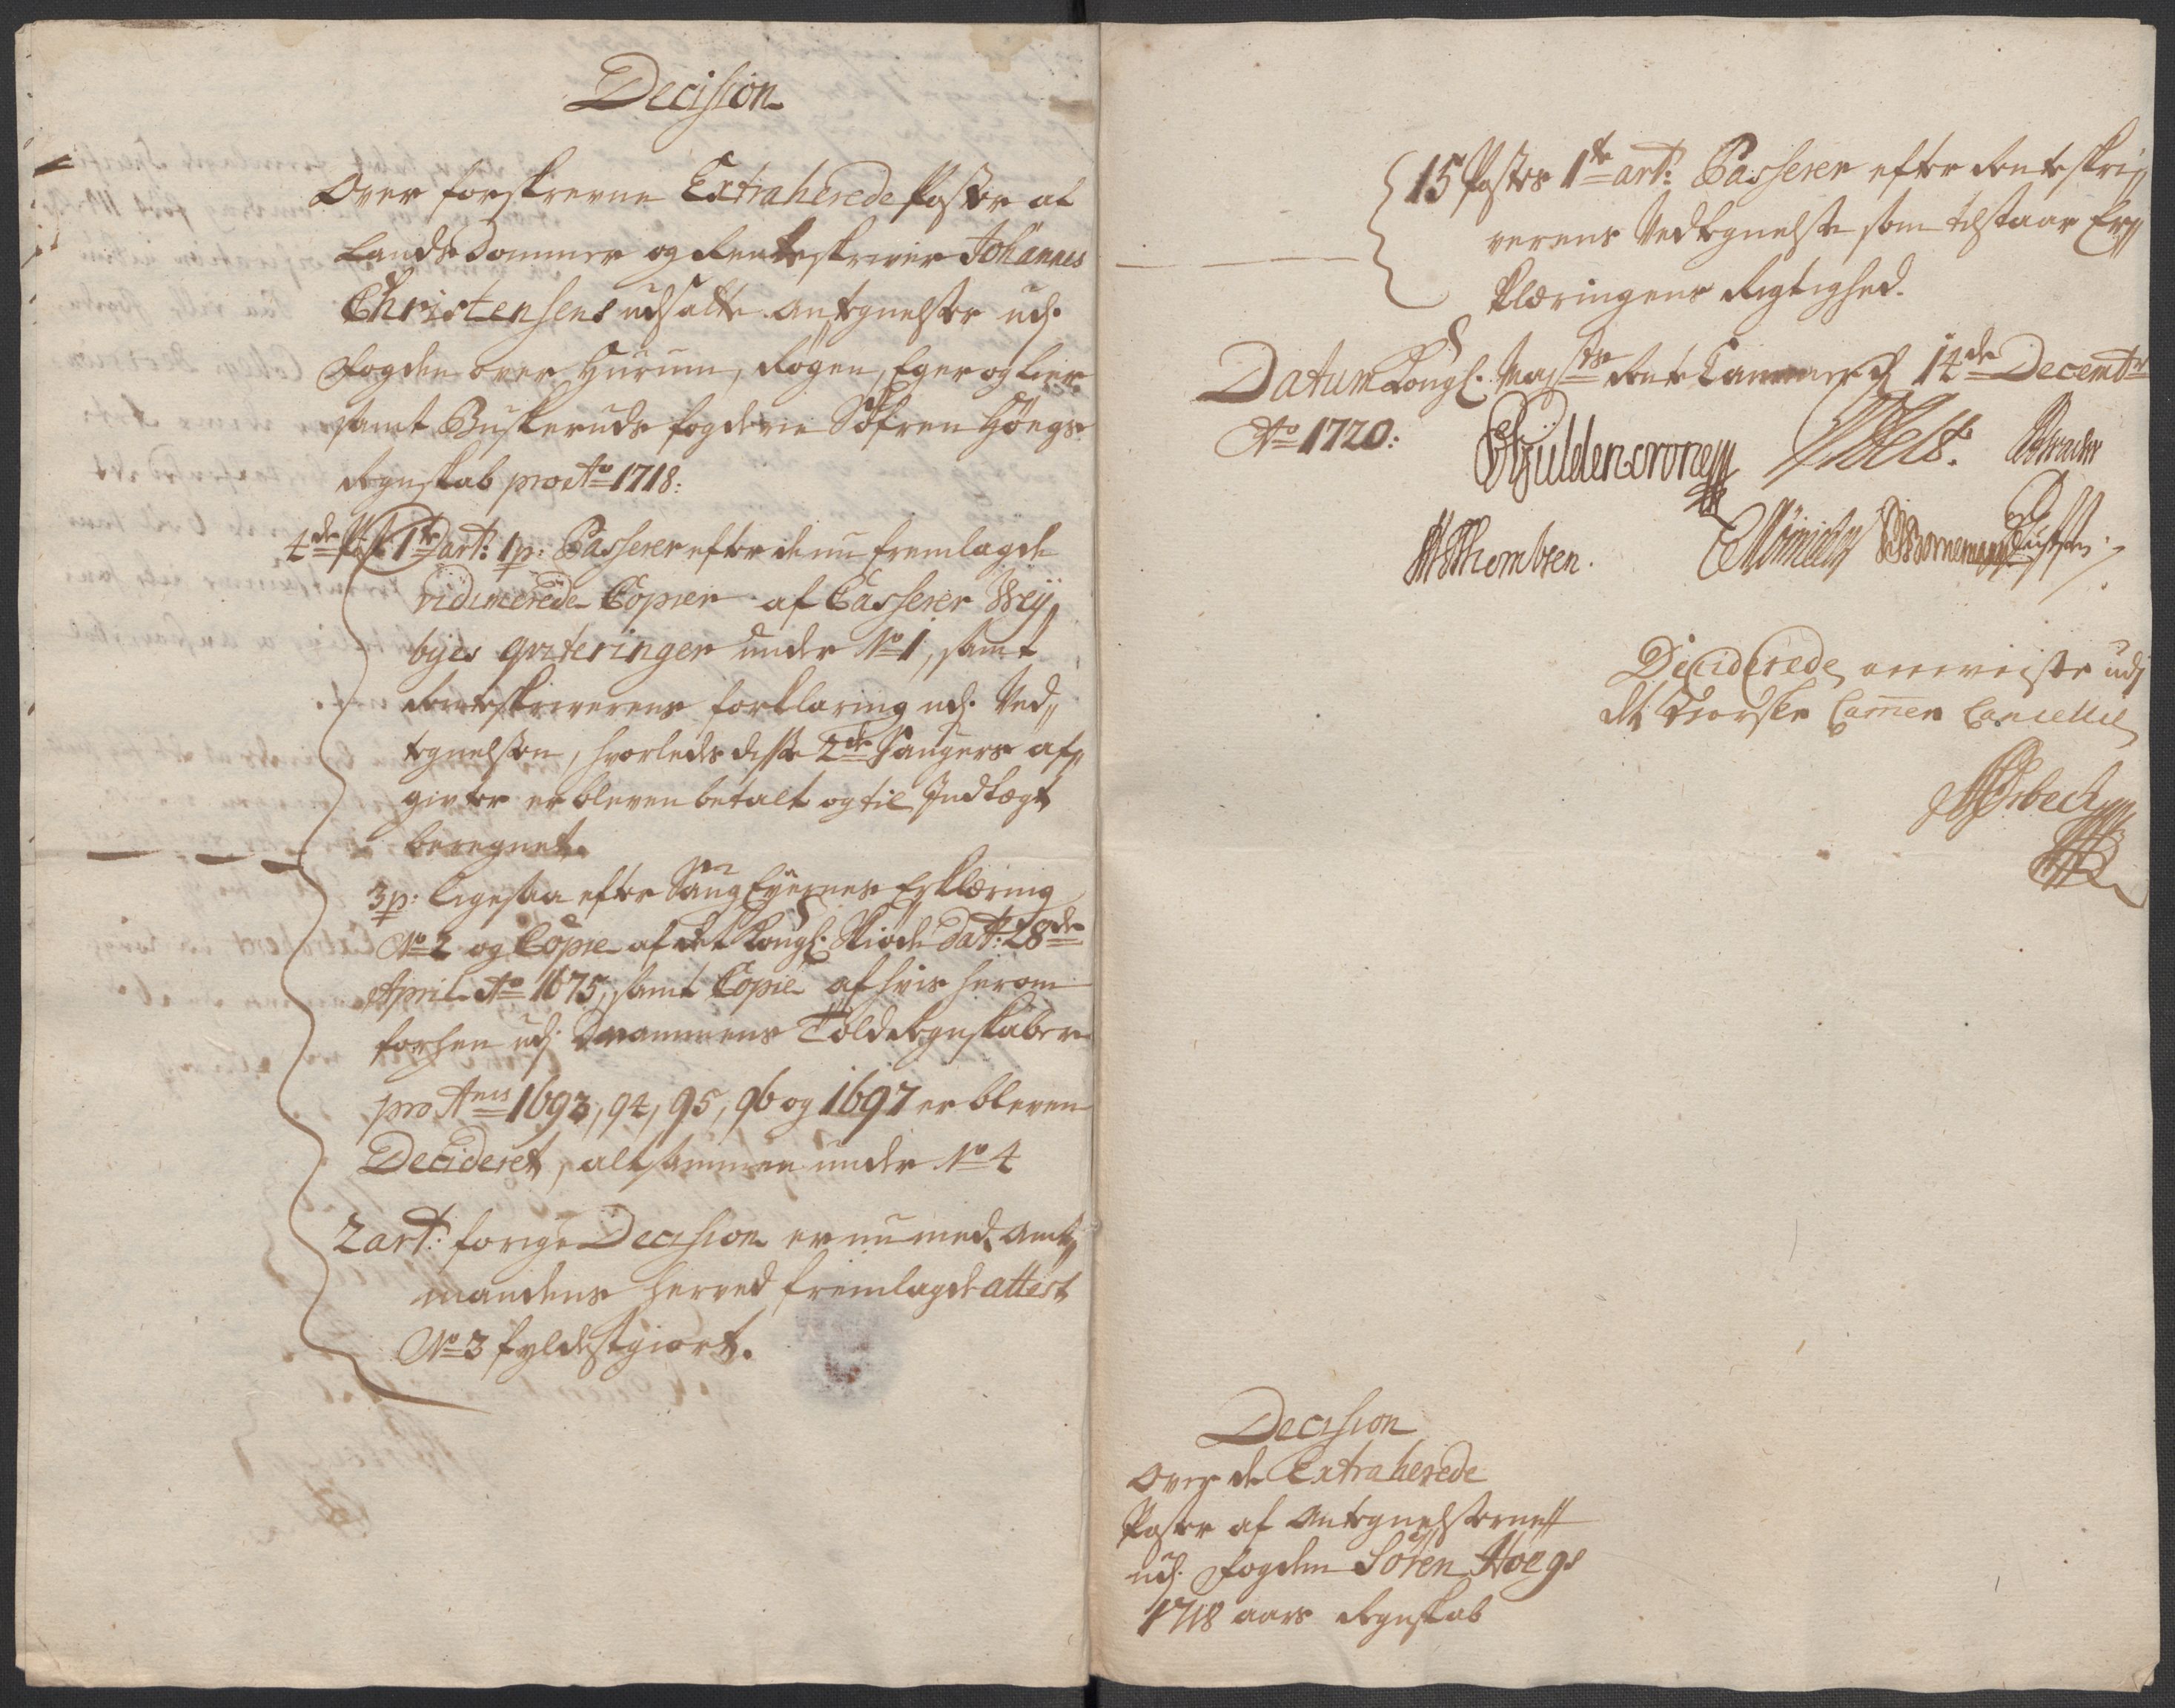 Decision
Over forskrevne Extraherede Poster af
Lands Dommer og Renteskriver Johannes
Christensens udsatte Antegnelser udj
Fogden over Hurum, Røgen, Eger og Lier
samt Buskeruds fogderie Søfren Høegs
Regnskab pro Ao 1718:
4de Post 1te art: 1p: Passerer efter de nu fremlagde
vidimerede Copier af Casserer Wey„
byes qviteringer under No 1, samt
Renteskriverens forklaring udj Ved„
tegnelsen, hvorledes disse 2de Saugers af„
givter er bleven betalt og til Indtægt
beregnet.
3p: ligesaa efter Saug Eyernes Erklæring
No 2 og Copie af det Kongl: Skiøde dat: 28de
April Ao 1675, samt Copie af hvis herom
forhen udj Drammens Told Regnskaber
pro Anis 1693, 94, 95, 96 og 1697 er bleven
Decideret, alt sammen under No 4
2 art: forrige Decision er nu med Amt„
mandens herved fremlagde attest
No 3 fyldestgiort.
15 Postes 1te art: Passerer efter Renteskri„
verens Vedtegnelse som tilstaar Er„
klæringens Rigtighed.
Datum Kongl: Mayts Rente Cammer d 14de Decembr
Ao 1720:
Güldencrone
HThombsen. Bornemann
Deciderede anviiste udj
det Norske Cammer Cancellie
Decision
Over de Extraherede
Poster af Antegnelserne
udj Fogden Sören Höegs
1718 aars Regnskab